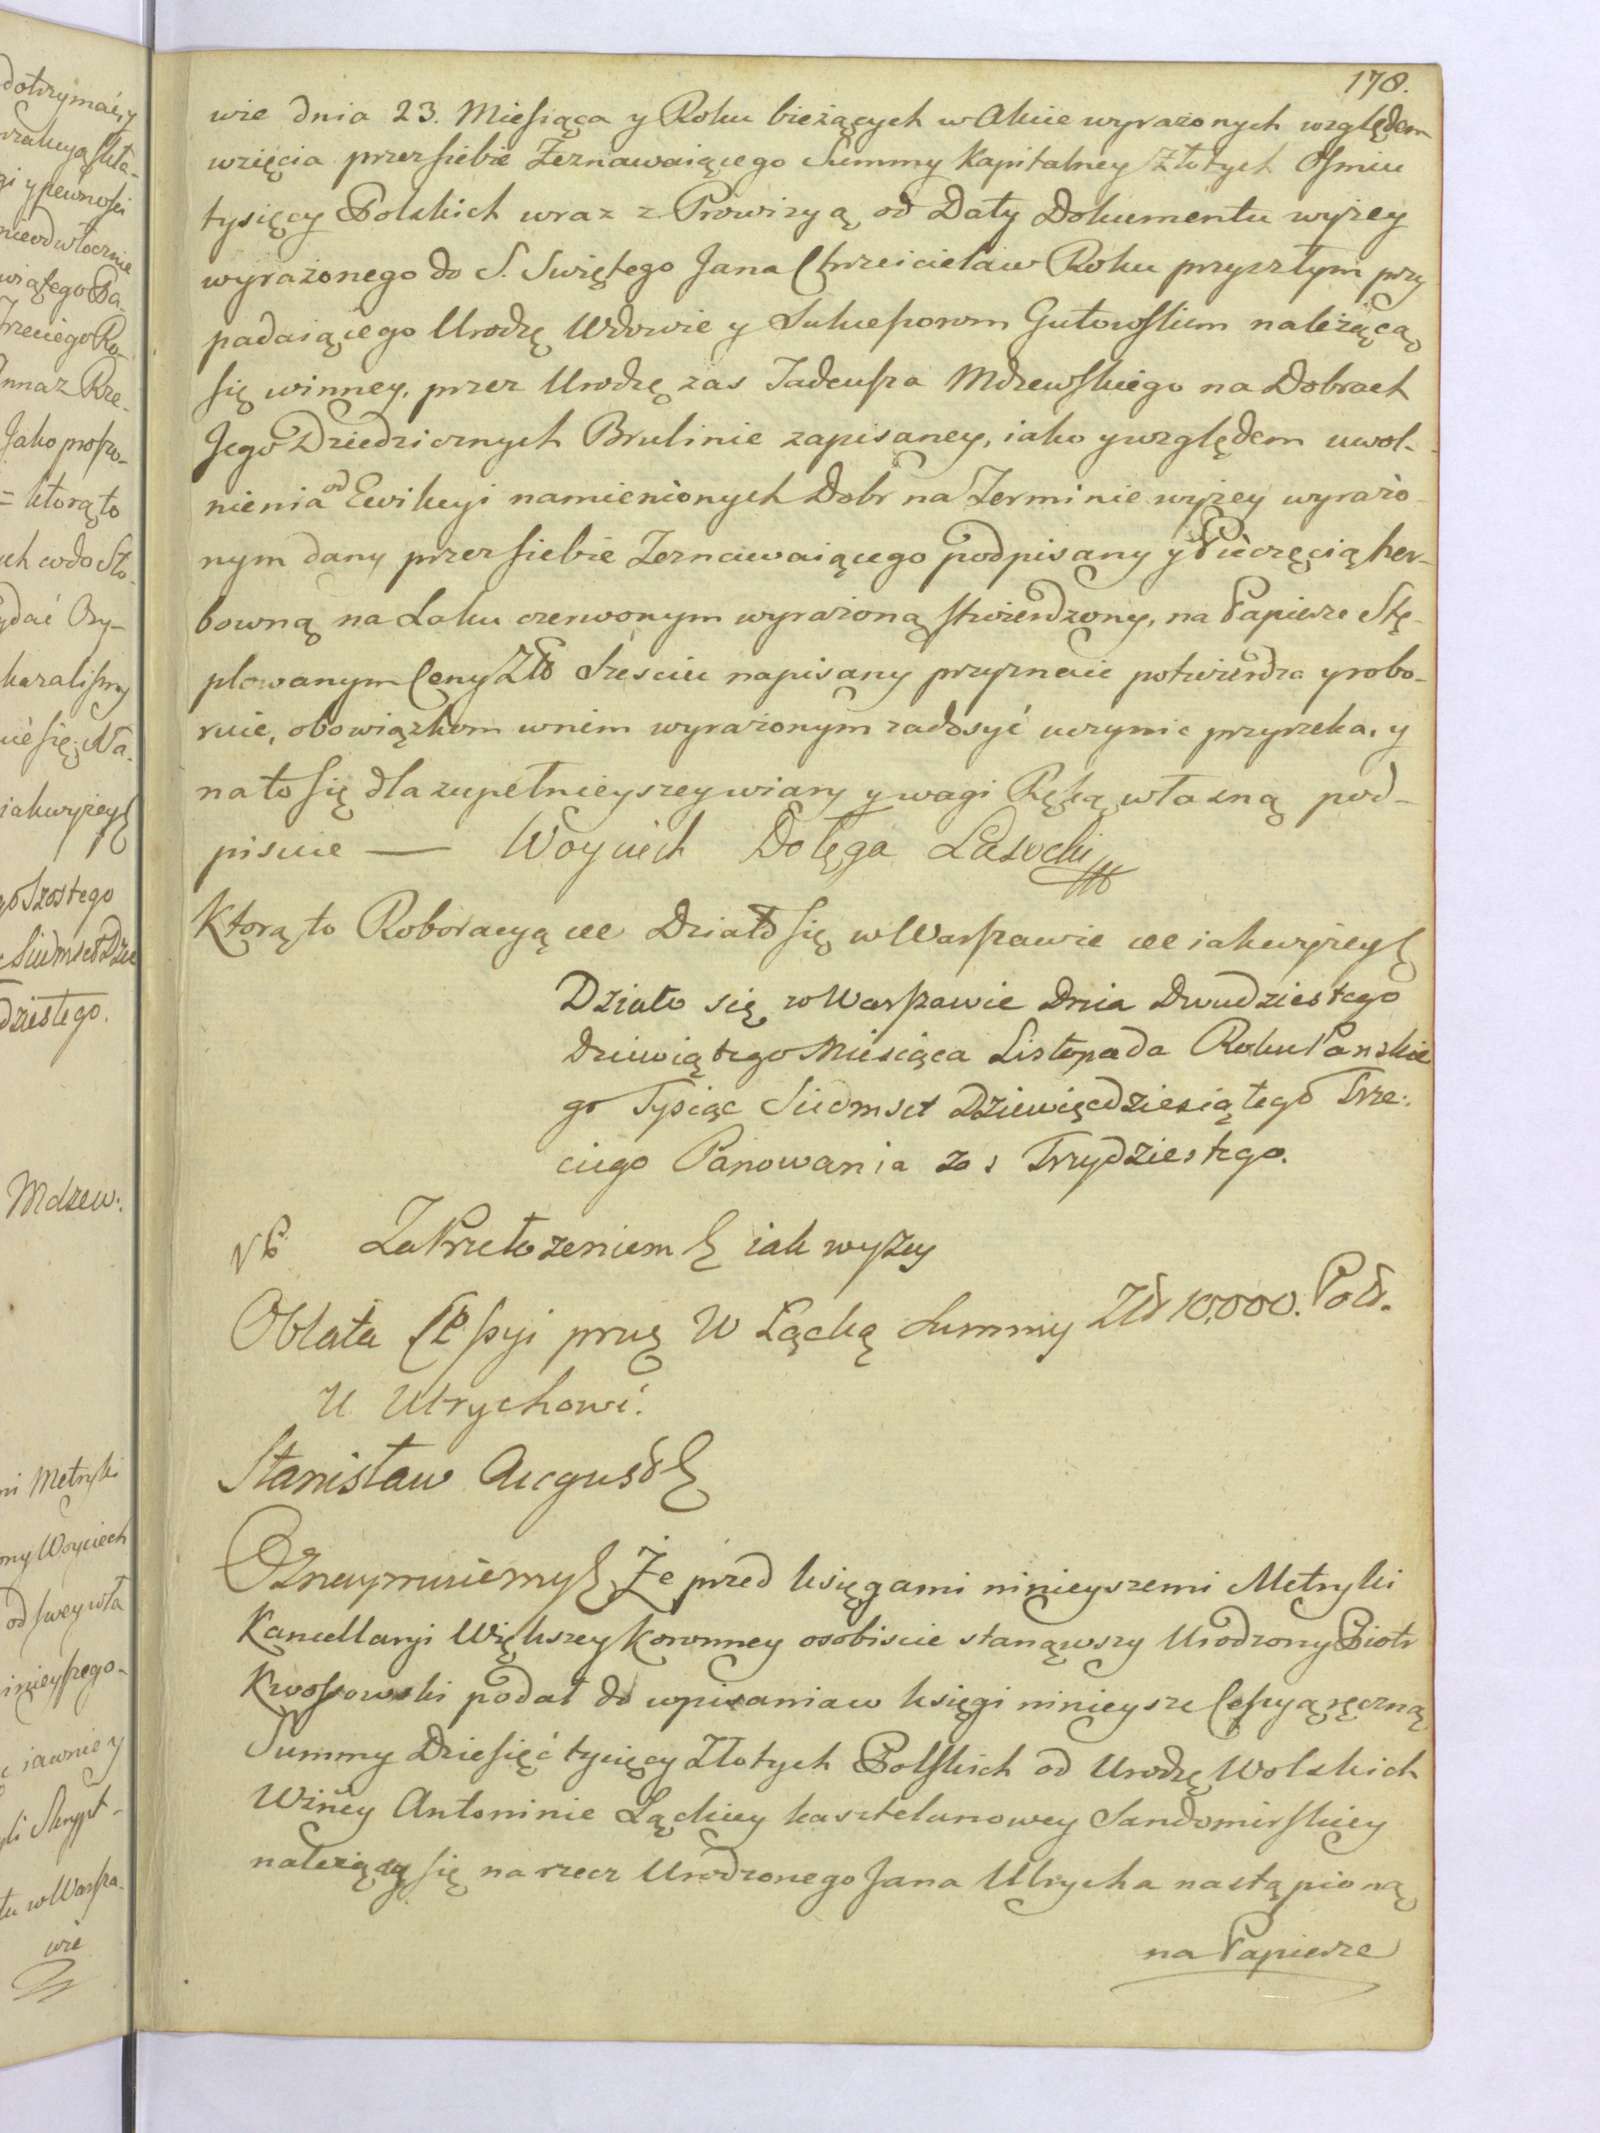 178.
wie dnia 23. Miesiąca y Roku bieżących w Akcie wyrazonych względem
wzięcia przez siebie Zeznawaiącego Summy Kapitalney Złotych Osmiu
tysięcy Polskich wraz z Prowizyą od Daty Dokumentu wyżey
wyrażonego do S. Swiętego Jana Chrzciciela w Roku przyszłym przy
padaiącego Urodzę Wdowie y Sukcessorom Gutowskim należącą
się winney, przez Urodzę zas Tadeusza Mdzewskiego na Dobrach
Jego Dziedzicznych Brulinie zapisaney, iako y względem uwol-
nienia od Ewikcyi namienionych Dobr na Terminie wyżey wyrażo-
nym dany przez siebie Zeznawaiącego podpisany y Pieczęcią her-
bowną na Laku czerwonym wyrażoną stwierdzony, na Papierze Stę-
plowanym Ceny Złł Sześciu napisany przyznaie potwierdza y robo-
ruie, obowiązkom w nim wyrażonym zadosyć uczynic przyrzeka, y
na to się dla zupełnieyszey wiary y wagi Ręką własną pod-
pisuie — Woyciech Dołęga Lasocki
Ktorą to Roboracyą ec Działo się w Warszawie ec iak wyżey
Działo się w Warszawie Dnia Dwudziestego
Dziewiątego Miesiąca Listopada Roku Panskie
go Tysiąc Siedmset Dziewięcdziesiątego Trze-
ciego Panowania zas Trzydziestego.
Za Przełozeniem iak wyzey
Oblata Cessyi przę W Łącką Summy Złł 10,000. Pol.
U Ulrychowi.
Stanisław August
Oznaymuiemy Że przed księgami ninieyszemi Metryki
Kancellaryi Większey Koronney osobiscie stanąwszy Urodzony Piotr
Kwossowski podał do wpisania w księgi ninieysze Cessyą ręczną
Summy Dziesięć tysięcy Złotych Polskich od Urodzę Wolskich
Winey Antoninie Łąckiey kasztelanowey Sandomirskiey
należącey się na rzecz Urodzonego Jana Ulrycha nastąpioną
na Papierze